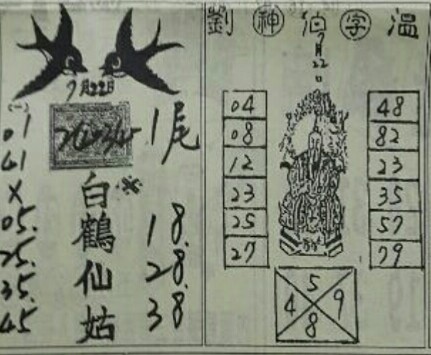 7月22日
(一)
01
41
X
05.
25.
35.
45
1尾
白鶴仙姑
※
18.
28.
38
劉神伯字溫
7月22日
04
08
12
23
25
27
48
82
23
35
57
79
5
4 9
8